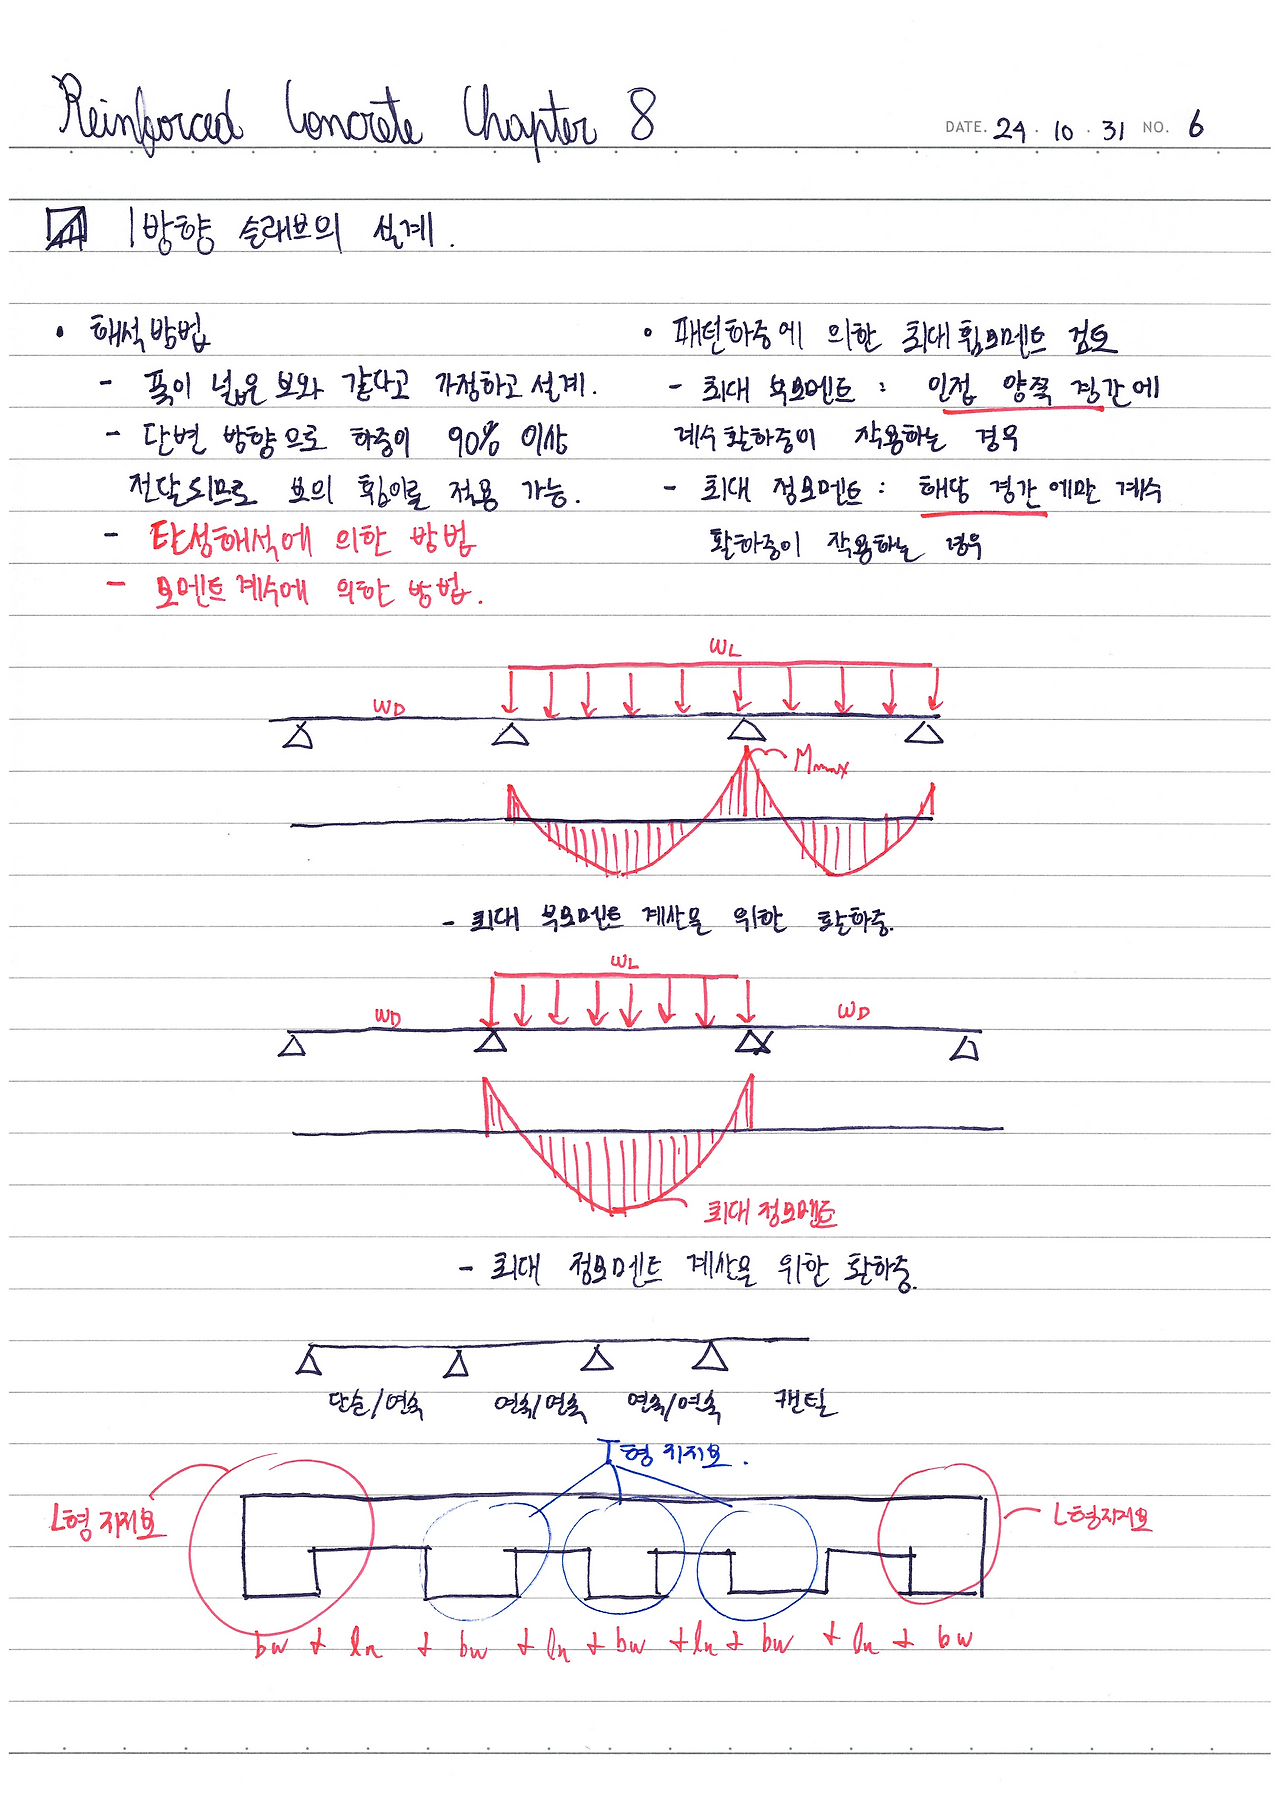 Reinforced Concrete Chapter 8
DATE. 24 · 10 · 31 NO. 6
1방향 슬래브의 설계.
• 해석방법
- 폭이 넓은 보와 같다고 가정하고 설계.
- 단변 방향으로 하중이 90% 이상
전달되므로 보의 휨이론 적용 가능.
- 탄성해석에 의한 방법
- 모멘트계수에 의한 방법.
• 패턴하중에 의한 최대휨모멘트 검토
- 최대 부모멘트 : 인접 양쪽 경간에
계수활하중이 작용하는 경우
- 최대 정모멘트 : 해당 경간에만 계수
활하중이 작용하는 경우
WL
WD
Mmax
- 최대 부모멘트 계산을 위한 활하중.
WL
WD
WD
최대정모멘트
- 최대 정모멘트 계산을 위한 활하중.
단순/연속 연속/연속 연속/연속 캔틸
T형 지지보.
L형 지지보
L형지지보
bw + ln + bw + ln + bw + ln + bw + ln + bw